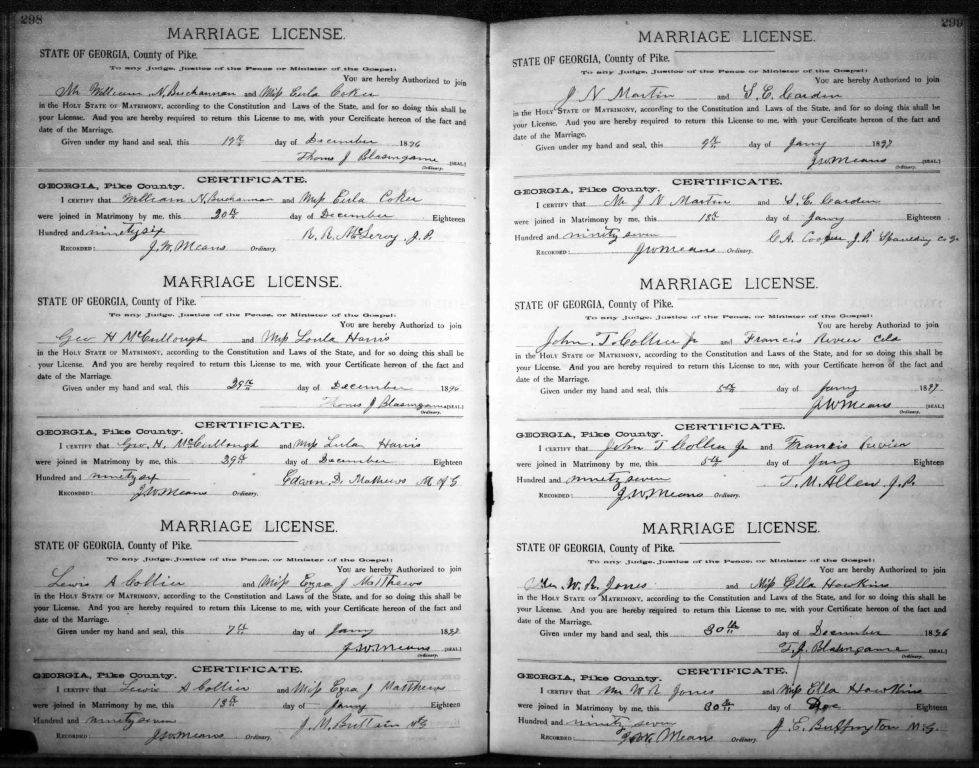 298
MARRIAGE LICENSE.
STATE OF GEORGIA, County of Pike.
To any Judge, Justice of the Peace, or Minister of the Gospel:
You are hereby Authorized to join
Mr William N. Buchannan and Miss Eula Coker
in the HOLY STATE OF MATRIMONY, according to the Constitution and Laws of the State, and for so doing this shall be
your License. And you are hereby required to return this License to me, with your Certificate hereon of the fact and
date of the Marriage.
Given under my hand and seal, this 19th day of December 1896
Thomas J Blasingame [SEAL.]
Ordinary.
CERTIFICATE.
GEORGIA, Pike County.
I CERTIFY that William N. Buchannan and Miss Eula Coker
were joined in Matrimony by me, this 20th day of December Eighteen
Hundred and ninety six R. R. McLeroy J. P.
RECORDED: J. W. Means Ordinary.
MARRIAGE LICENSE.
STATE OF GEORGIA, County of Pike.
To any Judge, Justice of the Peace, or Minister of the Gospel:
You are hereby Authorized to join
Geo H McCullough and Miss Loula Harris
in the HOLY STATE OF MATRIMONY, according to the Constitution and Laws of the State, and for so doing this shall be
your License. And you are hereby required to return this License to me, with your Certificate hereon of the fact and
date of the Marriage.
Given under my hand and seal, this 29th day of December 1896
Thomas J Blasingame [SEAL.]
Ordinary.
CERTIFICATE.
GEORGIA, Pike County.
I CERTIFY that Geo. H. McCullough and Miss Lula Harris
were joined in Matrimony by me, this 29th day of December Eighteen
Hundred and ninety six Edwin D. Mathews M of G
RECORDED: J. W. Means Ordinary.
MARRIAGE LICENSE.
STATE OF GEORGIA, County of Pike.
To any Judge, Justice of the Peace, or Minister of the Gospel:
You are hereby Authorized to join
Lewis A Collier and Miss Ezra J Matthews
in the HOLY STATE OF MATRIMONY, according to the Constitution and Laws of the State, and for so doing this shall be
your License. And you are hereby required to return this License to me, with your Certificate hereon of the fact and
date of the Marriage.
Given under my hand and seal, this 7th day of Jany 1897
J. W. Means [SEAL.]
Ordinary.
CERTIFICATE.
GEORGIA, Pike County.
I CERTIFY that Lewis A Collier and Miss Ezra J Matthews
were joined in Matrimony by me, this 13th day of Jany Eighteen
Hundred and ninety seven J. M. Brittain MG
RECORDED: J. W. Means Ordinary.
299
MARRIAGE LICENSE.
STATE OF GEORGIA, County of Pike.
To any Judge, Justice of the Peace, or Minister of the Gospel:
You are hereby Authorized to join
J N Martin and S. E. Carden
in the HOLY STATE OF MATRIMONY, according to the Constitution and Laws of the State, and for so doing this shall be
your License. And you are hereby required to return this License to me, with your Certificate hereon of the fact and
date of the Marriage.
Given under my hand and seal, this 9th day of Jany 1897
J. W. Means [SEAL.]
Ordinary.
CERTIFICATE.
GEORGIA, Pike County.
I CERTIFY that Mr J N Martin and S. E. Carden
were joined in Matrimony by me, this day of Jany Eighteen
Hundred and ninety seven C. A. Cooper J. P. Spaulding Co Ga
RECORDED: J. W. Means Ordinary.
MARRIAGE LICENSE.
STATE OF GEORGIA, County of Pike.
To any Judge, Justice of the Peace, or Minister of the Gospel:
You are hereby Authorized to join
John T. Collier Jr and Francis River Cold
in the HOLY STATE OF MATRIMONY, according to the Constitution and Laws of the State, and for so doing this shall be
your License. And you are hereby required to return this License to me, with your Certificate hereon of the fact and
date of the Marriage.
Given under my hand and seal, this 5th day of Jany 1897
J. W. Means [SEAL.]
Ordinary.
CERTIFICATE.
GEORGIA, Pike County.
I CERTIFY that John T Collier Jr and Francis
were joined in Matrimony by me, this 5th day of Jany Eighteen
Hundred and ninety seven T. M. Allen J. P.
RECORDED: J. W. Means Ordinary.
MARRIAGE LICENSE.
STATE OF GEORGIA, County of Pike.
To any Judge, Justice of the Peace, or Minister of the Gospel:
You are hereby Authorized to join
W. R. Jones and Miss Ella Hawkins
in the HOLY STATE OF MATRIMONY, according to the Constitution and Laws of the State, and for so doing this shall be
your License. And you are hereby required to return this License to me, with your Certificate hereon of the fact and
date of the Marriage.
Given under my hand and seal, this 30th day of December 1896
T. J. Blasingame [SEAL.]
Ordinary.
CERTIFICATE.
GEORGIA, Pike County.
I CERTIFY that Mr W. R Jones and Miss Ella Hawkins
were joined in Matrimony by me, this 30th day of Dec Eighteen
Hundred and ninety seven J. E. Buffington M. G.
RECORDED: J. W. Means Ordinary.